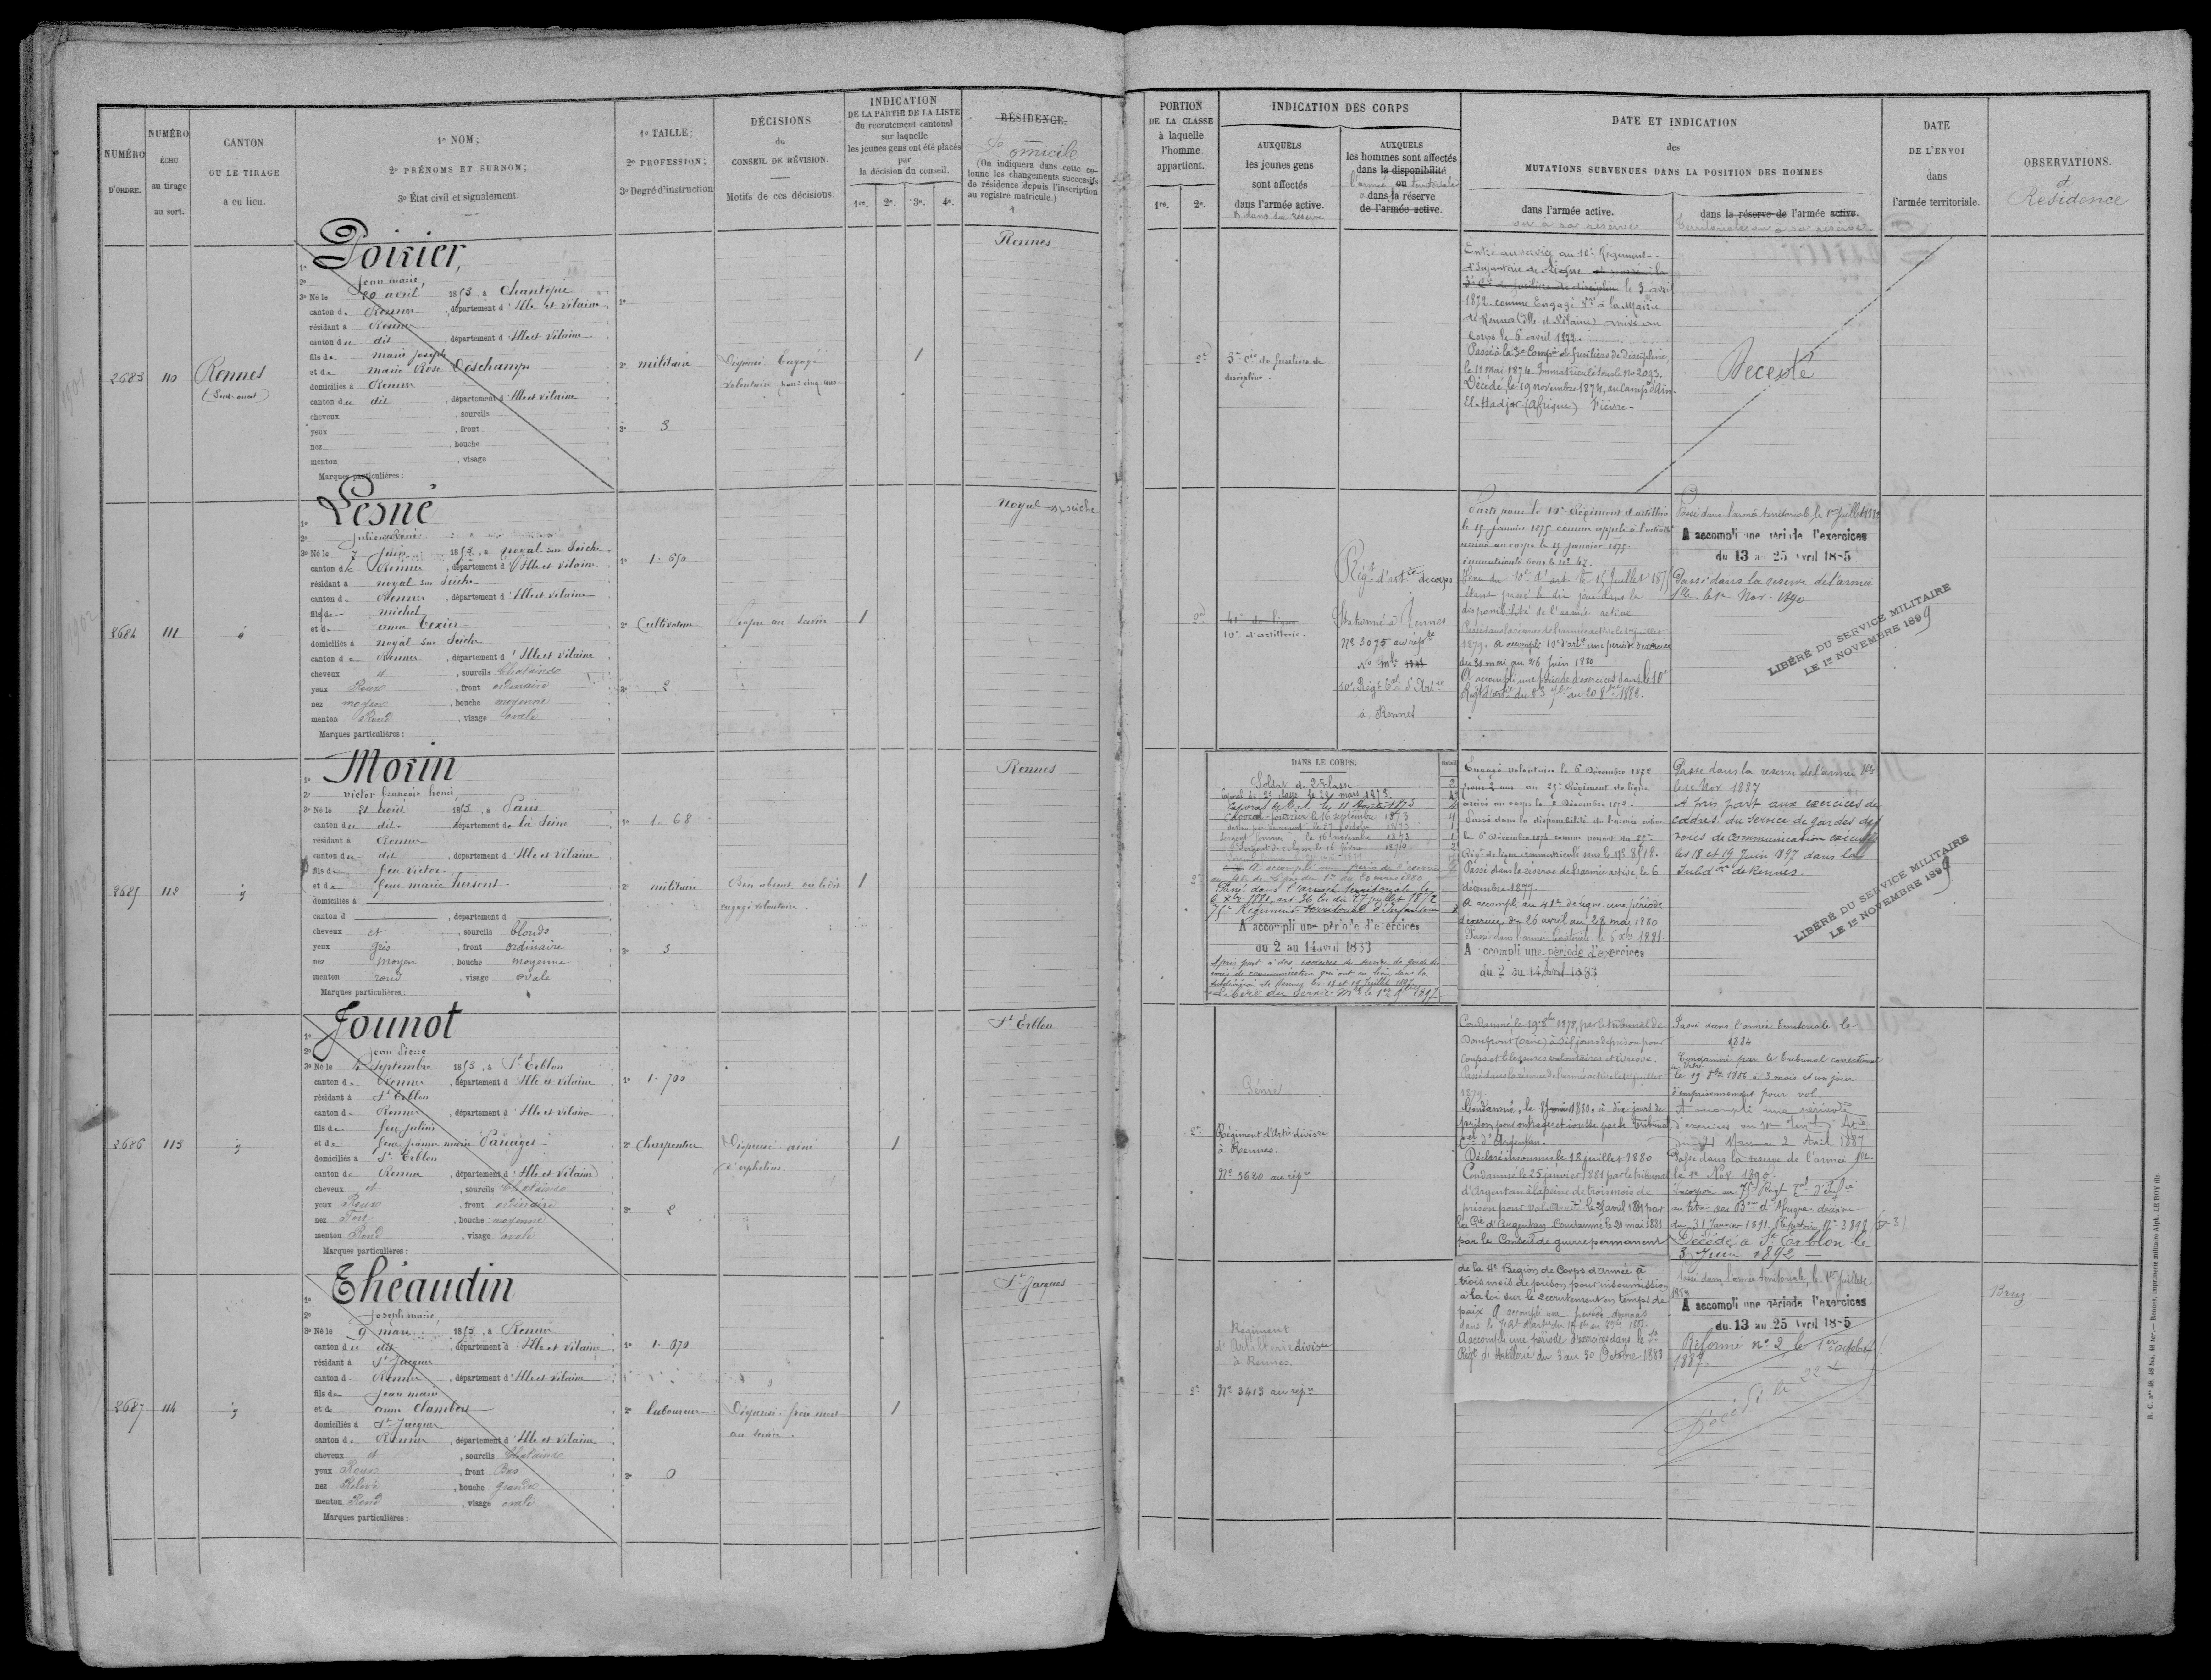 NUMÉRO
D'ORDRE.
NUMÉRO
ÉCHU
au tirage
au sort.
CANTON
OU LE TIRAGE
a eu lieu.
1º NOM;
2º PRÉNOMS ET SURNOM;
3º État civil et signalement.
1º TAILLE;
2º PROFESSION;
3º Degré d'instruction
DÉCISIONS
du
CONSEIL DE RÉVISION.
Motifs de ces décisions.
INDICATION
DE LA PARTIE DE LA LISTE
du recrutement cantonal
sur laquelle
les jeunes gens ont été placés
par
la décision du conseil.
1re. 2e. 3e. 4e.
RÉSIDENCE.
Domicile
(On indiquera dans cette co-
lonne les changements successifs
de résidence depuis l'inscription
au registre matricule.)
1
2683
110
Rennes
(Sud-ouest)
1º Poirier,
2º Jean marie,
3º Né le 20 avril 1853, à Chantepie
canton de Rennes, département d'Ille et Vilaine
résidant à Rennes
canton de dit, département d'Ille et Vilaine
fils de marie Joseph
et de marie Rose Deschamps
domiciliés à Rennes
canton de dit, département d'Ille et Vilaine
cheveux , sourcils
yeux , front
nez , bouche
menton , visage
Marques particulières :
1º
2º militaire
3º 3
Dispensé Engagé
volontaire pour cinq ans.
1
Rennes
2684
111
1º Lesné
2º Julien René
3º Né le 7 Juin 1853, à noyal sur Seiche
canton de Rennes, département d'Ille et Vilaine
résidant à noyal sur Seiche
canton de Rennes, département d'Ille et Vilaine
fils de michel
et de anne Texier
domiciliés à noyal sur Seiche
canton de Rennes, département d'Ille et Vilaine
cheveux et , sourcils Chatains
yeux Roux , front ordinaire
nez moyen , bouche moyenne
menton Rond , visage ovale
Marques particulières :
1º 1. 650
2º Cultivateur
3º 2
Propre au service
1
Noyal sr seiche
2685
112
1º Morin
2º victor françois henri,
3º Né le 21 avril 1853, à Paris
canton de dit, département de la Seine
résidant à Rennes
canton de dit, département d'Ille et Vilaine
fils de feu victor
et de feue marie hersent
domiciliés à
canton d , département d
cheveux et , sourcils blonds
yeux gris , front ordinaire
nez moyen , bouche moyenne
menton rond , visage ovale
Marques particulières :
1º 1. 68
2º militaire
3º 3
engagé volontaire.
1
Rennes
2686
113
1º Jounot
2º Jean Pierre
3º Né le 4 Septembre 1853, à St Erblon
canton de Rennes, département d'Ille et Vilaine
résidant à St Erblon
canton de Rennes, département d'Ille et Vilaine
fils de feu Julien
et de feue jeanne marie Panaget
domiciliés à St Erblon
canton de Rennes, département d'Ille et Vilaine
cheveux et , sourcils Chatains
yeux Roux , front ordinaire
nez Fort , bouche moyenne
menton Rond , visage ovale
Marques particulières :
1º 1. 700
2º Charpentier
3º 2
Dispensé aîné
d'orphelins.
1
St Erblon
2687
114
1º Théaudin
2º Joseph marie
3º Né le 9 mars 1853, à Rennes
canton de dit, département d'Ille et Vilaine
résidant à St Jacques
canton de Rennes, département d'Ille et Vilaine
fils de Jean marie
et de anne Chambert
domiciliés à St Jacques
canton de Rennes, département d'Ille et Vilaine
cheveux et , sourcils Chatains
yeux Roux , front Bas
nez Relevé , bouche grande
menton Rond , visage ovale
Marques particulières :
1º 1. 670
2º laboureur
3º 0
Dispensé frère mort
au service.
1
St Jacques
PORTION
DE LA CLASSE
à laquelle
l'homme
appartient.
1re. 2e.
INDICATION DES CORPS
AUXQUELS
les jeunes gens
sont affectés
dans l'armée active.
& dans sa réserve
AUXQUELS
les hommes sont affectés
dans la disponibilité
l'armée ou territoriale
dans la réserve
de l'armée active.
DATE ET INDICATION
des
MUTATIONS SURVENUES DANS LA POSITION DES HOMMES
dans l'armée active.
ou à sa réserve
dans la réserve de l'armée active.
Territoriale ou à sa réserve.
DATE
DE L'ENVOI
dans
l'armée territoriale.
OBSERVATIONS.
et
Résidence
2e
3e Cie de fusiliers de
discipline.
Entré au service au 10e Régiment
d'Infanterie de Ligne et passé à la
3e Cie de fusiliers de discipline le 3 avril
1872 comme Engagé Vre à la Mairie
de Rennes (Ille-et-Vilaine) arrivé au
Corps le 6 avril 1872.
Passé à la 3e Compie de fusiliers de discipline,
le 11 Mai 1874. Immatriculé sous le No 2093.
Décédé le 19 novembre 1874, au camp d'Aïn-
El-Hadjar (Afrique) Fièvre.
Décédé
2e
41e de ligne
10e d'artillerie.
Régt d'artie de corps
Stationné à Rennes
No 3075 au répre
10e Régt d'Artie
à Rennes
Parti pour le 10e Régiment d'artillerie
le 15 janvier 1875 comme appelé à l'activité
arrivé au corps le 15 janvier 1875.
immatriculé sous le No 42.
Venu du 10e d'art. le 15 Juillet 1875
étant passé le dix juin dans la
disponibilité de l'armée active
Passé dans la réserve de l'armée active le 1er juillet
1879. A accompli 10e d'artie une période d'exercices
du 31 mai au 26 Juin 1880
A accompli une période d'exercices dans le 10e
Régt d'artie du 23 7bre au 20 8bre 1882.
Passé dans l'armée territoriale le 1er Juillet
A accompli une période d'exercices
du 13 au 25 Avril 18-5
Passé dans la réserve de l'armée
Tlle le 1er Nov. 1890
LIBÉRÉ DU SERVICE MILITAIRE
LE 1er NOVEMBRE 1899
2e
DANS LE CORPS.
Soldat de 2e classe
Caporal le 21 mars 1873.
Caporal-fourrier le 16 septembre 1873
Sergent fourrier le 16 novembre 1873
Passé dans l'armée territoriale le
6 Xbre 1881, art 36 loi du 27 juillet 1872
75e Régiment territorial d'Infanterie
A accompli une période d'exercices
du 2 au 14 avril 1883
A pris part à des exercices du service de garde des
voies de communication qui ont eu lieu dans la
subdivision de Rennes les 18 et 19 Juillet 1897.
Libéré du Service Mre le 1er 9bre 1897
Engagé volontaire le 6 Décembre 1872
pour 2 ans au 25e Régiment de ligne
arrivé au corps le 8 Décembre 1872.
Passé dans la disponibilité de l'armée active
le 6 Décembre 1874 comme venant du 25e
Régt de ligne immatriculé sous le No 8518.
Passé dans la réserve de l'armée active, le 6
décembre 1877.
A accompli au 41e de ligne une période
d'exercices du 26 avril au 22 mai 1880
Passé dans l'armée territoriale le 6 Xbre 1881
A accompli une période d'exercices
du 2 au 14 Avril 1883
Passé dans la réserve de l'armée Tlle
le 1er Nov. 1887
A pris part aux exercices des
cadres du service de gardes des
voies de communication exécutés
les 18 et 19 Juin 1897 dans la
Subdon de Rennes.
LIBÉRÉ DU SERVICE MILITAIRE
LE 1er NOVEMBRE 1899
2e
Génie
Régiment d'Artie divisre
à Rennes.
No 3620 au répre
Condamné, le 19 8bre 1878, par le tribunal de
Domfront (Orne) à dix jours de prison pour
coups et blessures volontaires et ivresse.
Passé dans la réserve de l'armée active le 1er juillet
1879.
Condamné le 8 janvier 1880 à dix jours de
prison pour outrages et ivresse par le tribunal
cel d'Argentan.
Déclaré insoumis le 18 juillet 1880
Condamné le 25 janvier 1881 par le tribunal
d'Argentan à la peine de trois mois de
prison pour vol. le 25 avril 1881 par
la Gie d'Argentan. Condamné le 20 mai 1881
par le Conseil de guerre permanent
de la 4e Région de Corps d'Armée à
trois mois de prison pour insoumission
à la loi sur le recrutement en temps de
paix
Passé dans l'armée territoriale le
1884
Condamné par le tribunal correctionnel
à Vitré
le 19 8bre 1886 à 3 mois et un jour
d'emprisonnement pour vol.
A accompli une période
d'exercices au 10e d'Artie
du 21 Mars au 2 Avril 1887
Passé dans la réserve de l'armée Tlle
le 1er Nov. 1890
incorporé au 75e Régt Tal d'Infie
au titre des Bons d'Afrique décision
du 31 Janvier 1891. Répertoire No 3898
Décédé à St Erblon le
3 Juin 1892
2e
Régiment
d'Artillerie divisre
à Rennes.
No 3413 au répre
A accompli une période d'exercices
A accompli une période d'exercices dans le 10e
Régt d'Artillerie du 3 au 30 Octobre 1883
Passé dans l'armée territoriale, le 1er Juillet
A accompli une période d'exercices
du 13 au 25 Avril 18-5
Réformé no 2 le 1er octobre
1887.
Décédé le 22
Bruz
R. C. nos 48, 48 bis, 48 ter.— Rennes, imprimerie militaire Alph. LE ROY fils